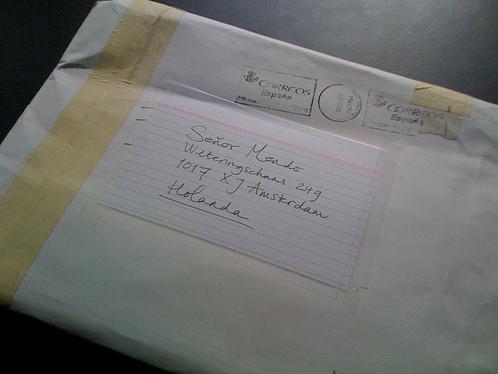 CORREOS
ESPAÑA
CORREOS
ESPAÑA
Señor Mendo
Weteringschans 249
1017 XJ Amsterdam
Holanda